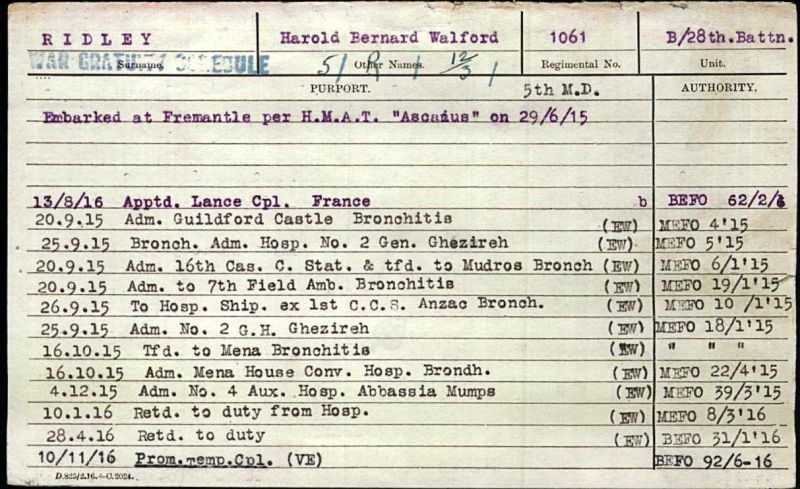 RIDLEY Harold Bernard Walford 1061 B/28th.Battn.
WAR GRATUITY SCHEDULE
Surname. 51 R 1 12/3 1 Other Names. Regimental No. Unit.
PURPORT. 5th M.D. AUTHORITY.
Embarked at Fremantle per H.M.A.T. "Ascanius" on 29/6/15
13/8/16 Apptd. Lance Cpl. France b BEFO 62/2/6
20.9.15 Adm. Guildford Castle Bronchitis (EW) MEFO 4'15
25.9.15 Bronch. Adm. Hosp. No. 2 Gen. Ghezireh (EW) MEFO 5'15
20.9.15 Adm. 16th Cas. C. Stat. & tfd. to Mudros Bronch (EW) MEFO 6/1'15
20.9.15 Adm. to 7th Field Amb. Bronchitis (EW) MEFO 19/1'15
26.9.15 To Hosp. Ship. ex 1st C.C.S. Anzac Bronch. (EW) MEFO 10 /1'15
25.9.15 Adm. No. 2 G.H. Ghezireh (EW) MEFO 18/1'15
16.10.15 Tfd. to Mena Bronchitis (EW) " " "
16.10.15 Adm. Mena House Conv. Hosp. Brondh. (EW) MEFO 22/4'15
4.12.15 Adm. No. 4 Aux. Hosp. Abbassia Mumps (EW) MEFO 39/3'15
10.1.16 Retd. to duty from Hosp. (EW) MEFO 8/3'16
28.4.16 Retd. to duty (EW) BEFO 31/1'16
10/11/16 Prom.temp.Cpl. (VE) BEFO 92/6-16
D.825/2.16.—C.2024.